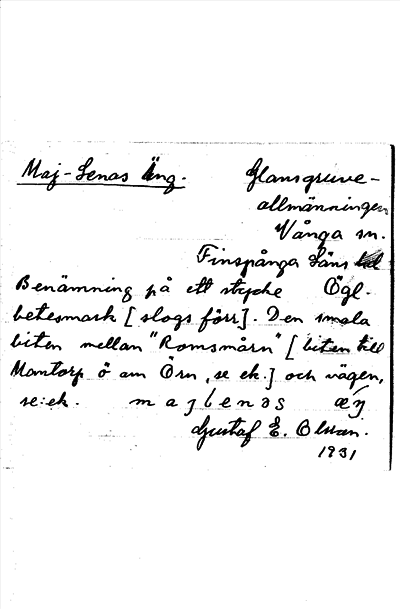 Maj-Lenas Äng. Glansgruve-
allmänningen
Vånga sn.
Finspånga Läns
Benämning på ett stycke Ögl.
betesmark [slogs förr]. Den smala
biten mellan "Romsmårn" [biten till
Mantorp ö om Örn, se ek.] och vägen,
se: ek. majlenas æŋ
Gustaf E. Olsson.
1931